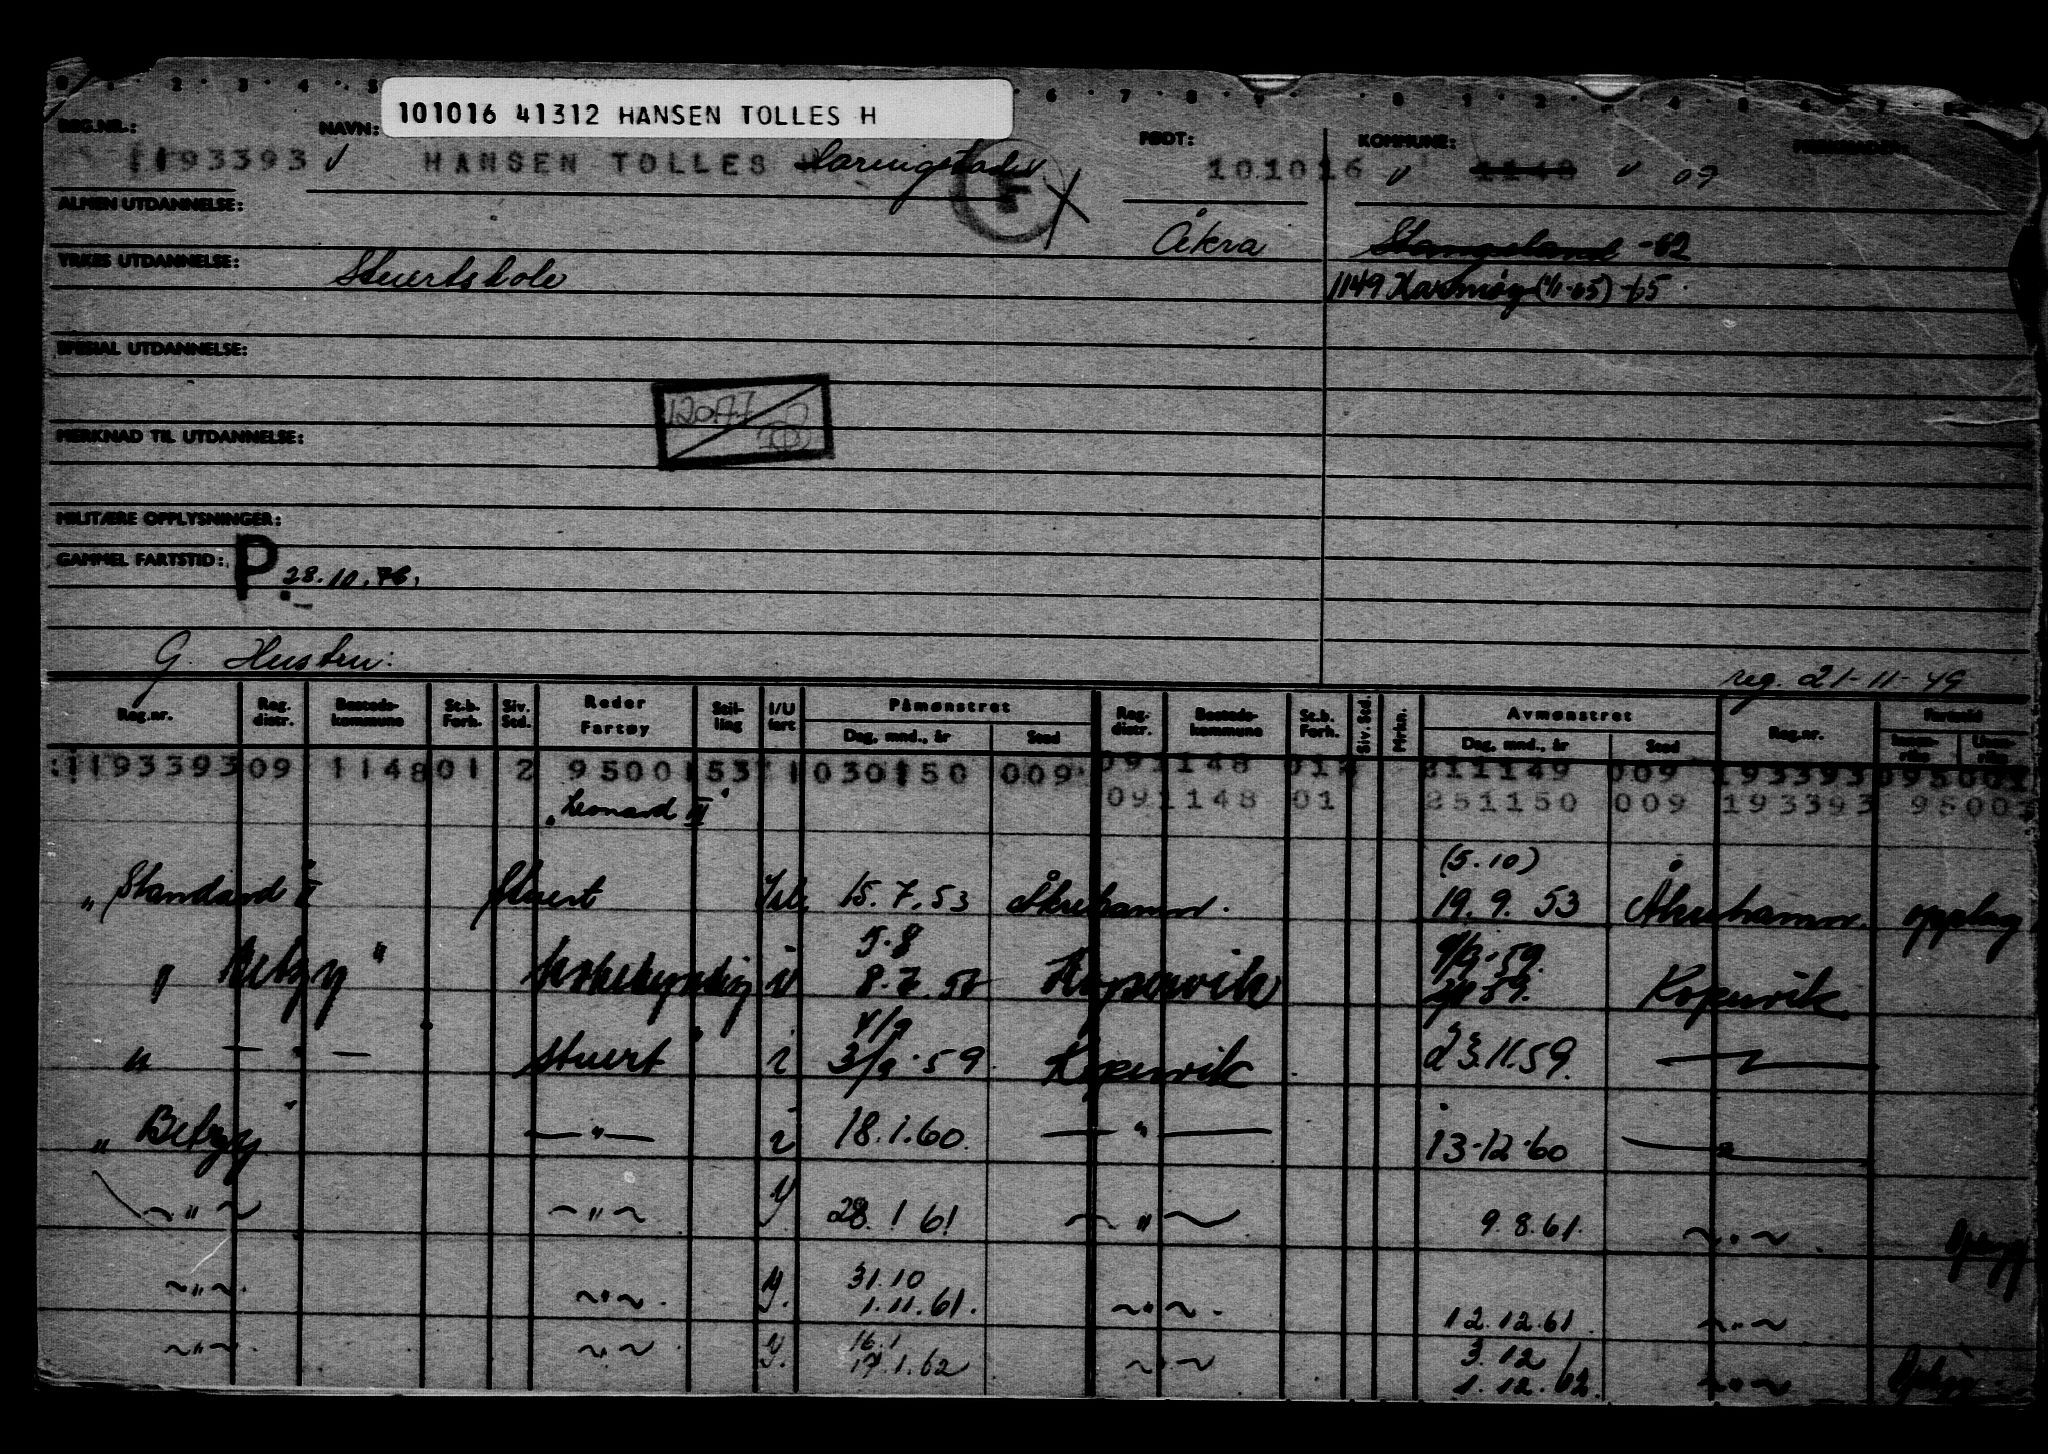 101016 41312 HANSEN TOLLES H
REG.NR.: NAVN: FØDT: KOMMUNE:
193393 HANSEN TOLLES 101016 1148 09
ALMEN UTDANNELSE:
Åkra -62
YRKES UTDANNELSE: Stuertskole
1149 Karmøy (1/1-65) -65
SPESIAL UTDANNELSE:
MERKNAD TIL UTDANNELSE:
MILITÆRE OPPLYSNINGER:
GAMMEL FARTSTID: P 28.10.76.
G. Hustru:
reg. 21-11-49
Reg.nr. Reg. distr. Bosteds-kommune St.b. Forh. Siv. Std. Reder Fartøy Stil-ling I/U fart Påmønstret Dag, mnd., år Sted Reg. distr. Bosteds-kommune St.b. Forh. Siv. Std. Mrkn. Avmønstret Dag, mnd., år Sted Reg.nr. Fartstid Innen-riks Uten-riks
1193393 09 1148 01 2 9500 153 1 030150 009 091148 01 311149 009 193393
"Leonard II" 091148 01 251150 009 193393 9500
(5.10)
"Standard II Stuert 15.7.53 Åkrehamn. 19.9.53 Åkrehamn. opplag
5.8 9/9-59.
"Betzy" i 8.7.57 Kopervik Kopervik
4/9
" — " — Stuert i 3/9.59 Kopervik 23.11.59.
"Betzy" — " — i 18.1.60 — " — 13-12-60 — " —
~ " ~ ~ " ~ 28.1 61 ~ " ~ 9.8.61. ~ " ~
31.10
~ " ~ ~ " ~ 1.11.61. ~ " ~ 12.12.61. ~ " ~
16.1 3.12
~ " ~ ~ " ~ 17.1.62 ~ " ~ 1.12.62. ~ " ~